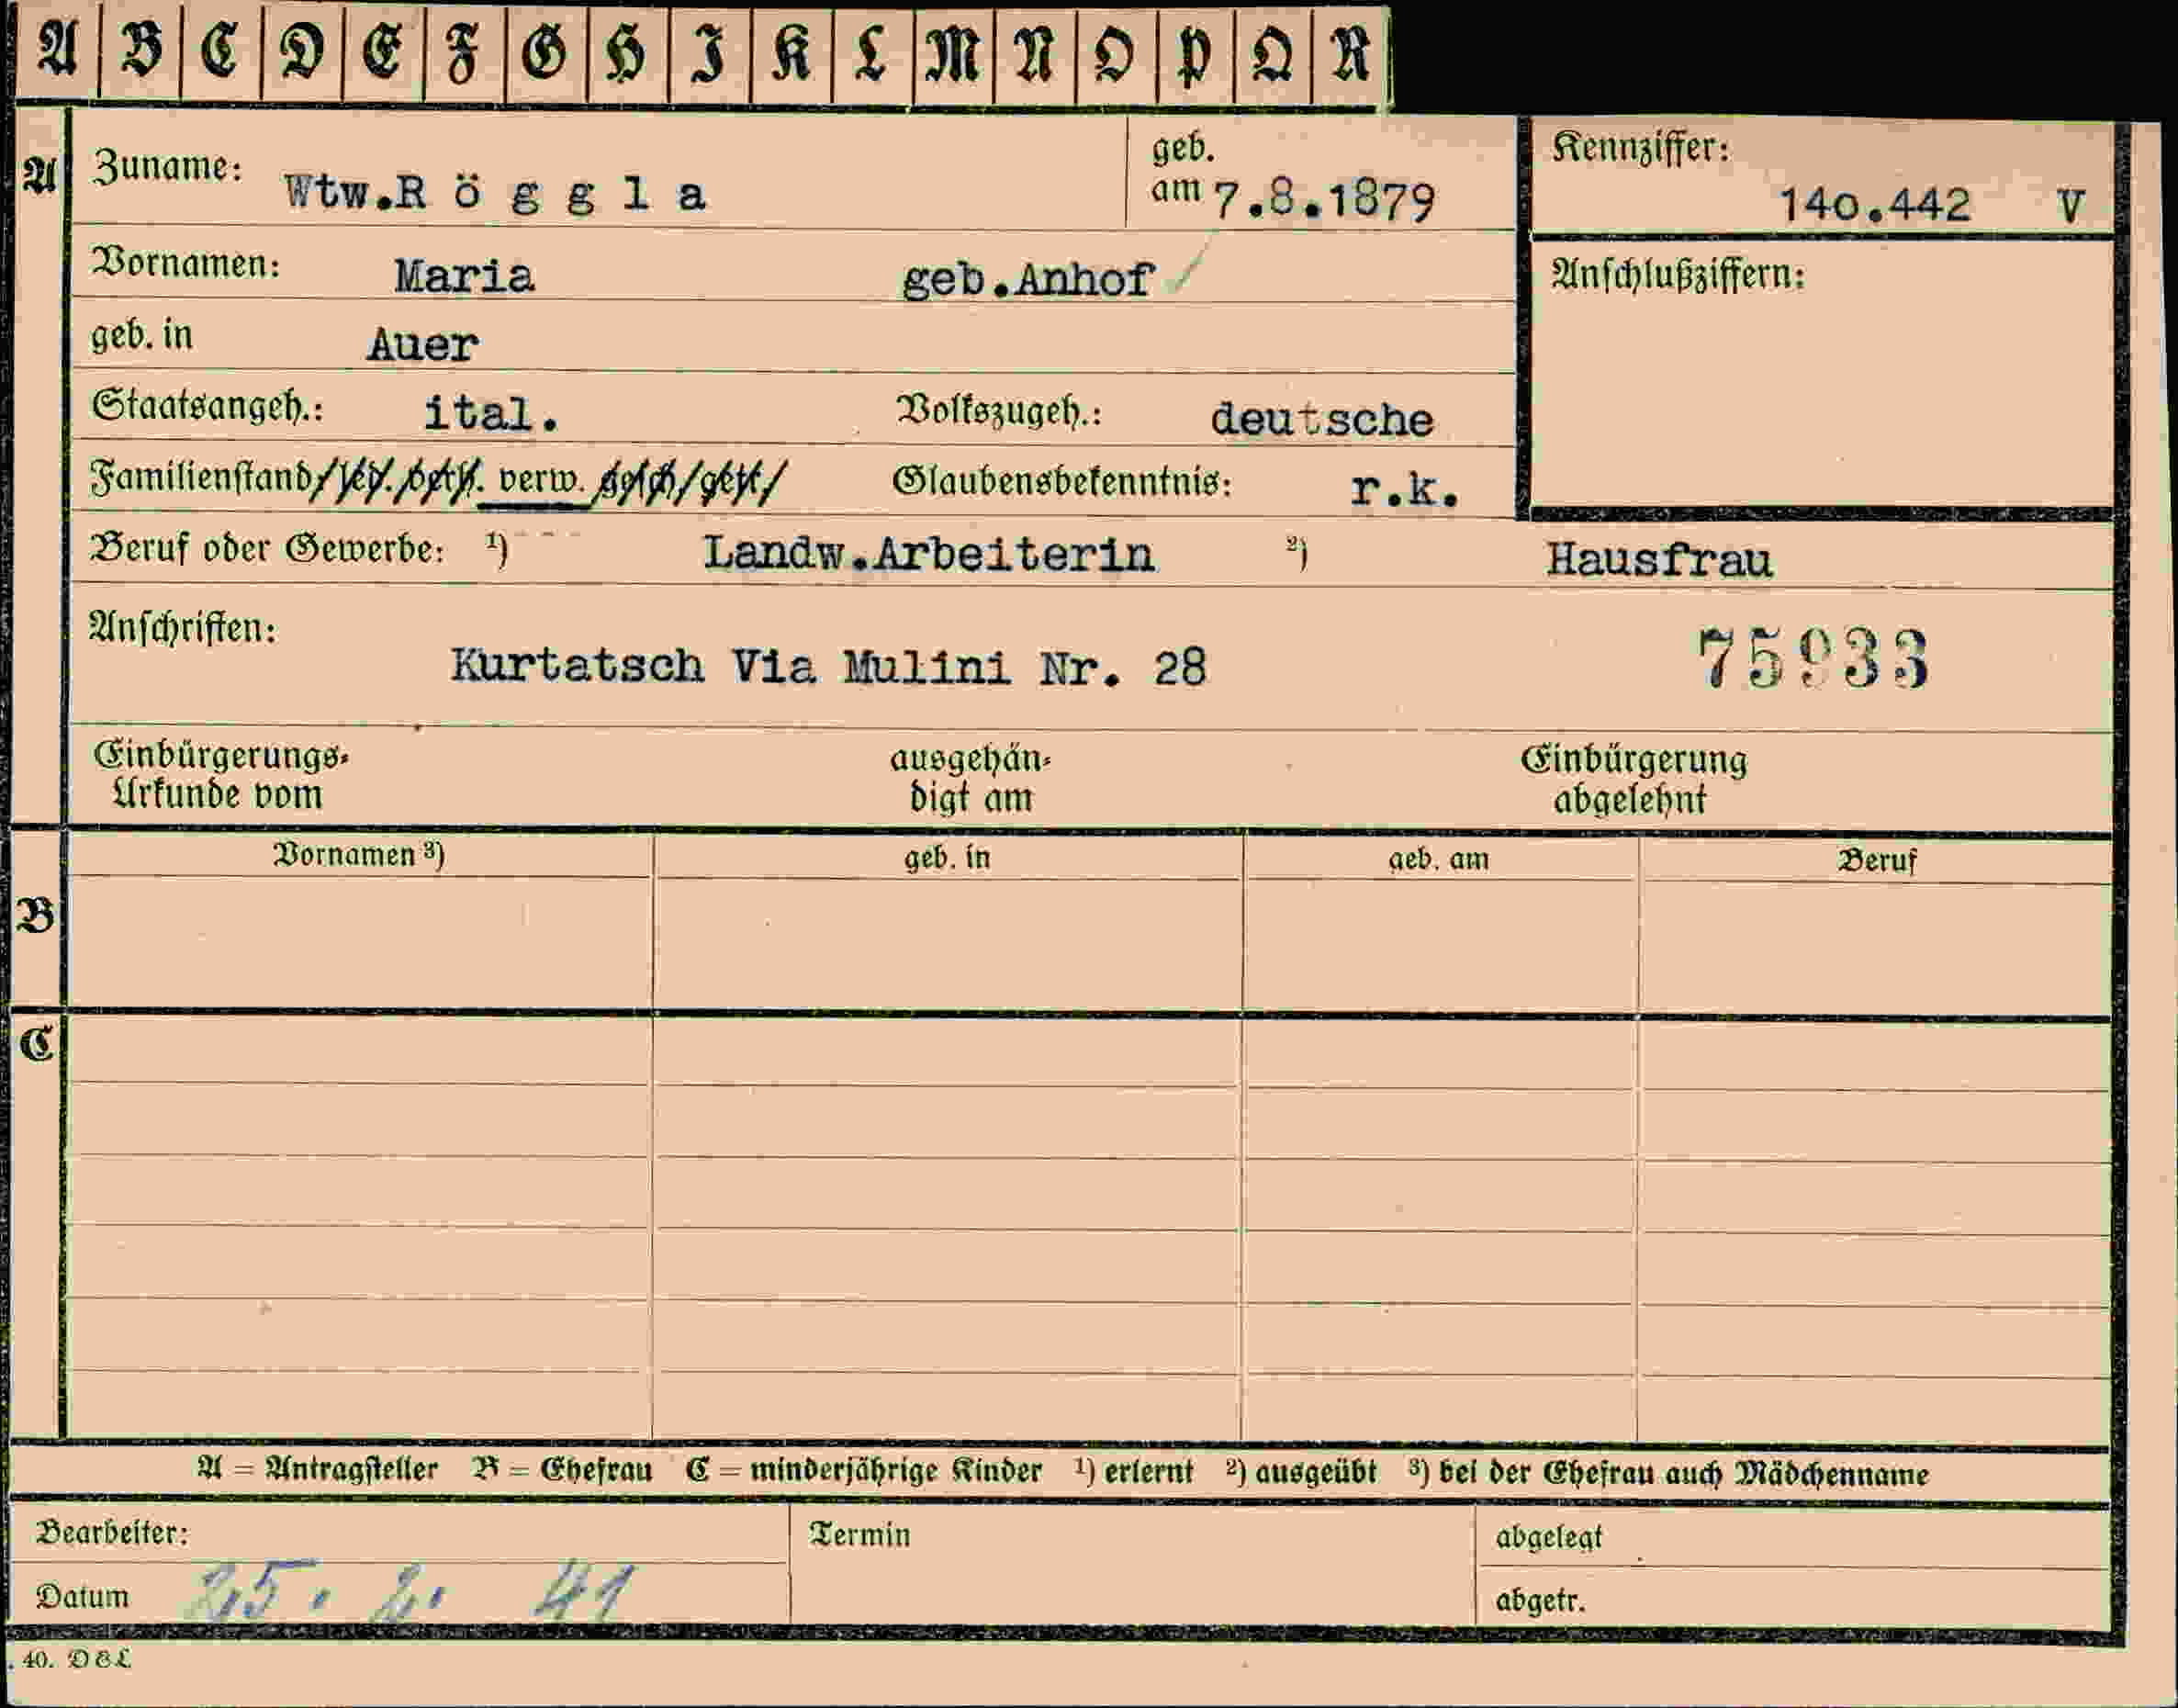 A B C D E F G H I K L M N O P Q R
A
Zuname: Wtw.R ö g g l a
geb. am 7.8.1879
Kennziffer: 140.442 V
Vornamen: Maria geb.Anhof
Anschlußziffern:
geb. in Auer
Staatsangeh.: ital. Volkszugeh.: deutsche
Familienstand led. verh. verw. gesch. Glaubensbekenntnis: r.k.
Beruf oder Gewerbe: ¹) Landw.Arbeiterin ²) Hausfrau
Anschriften: Kurtatsch Via Mulini Nr. 28 75933
Einbürgerungs-
Urkunde vom
ausgehän-
digt am
Einbürgerung
abgelehnt
Vornamen ³) geb. in geb. am Beruf
B
C
A = Antragsteller B = Ehefrau C = minderjährige Kinder ¹) erlernt ²) ausgeübt ³) bei der Ehefrau auch Mädchenname
Bearbeiter: Termin abgelegt
Datum 25. 2. 41 abgetr.
40. DEL